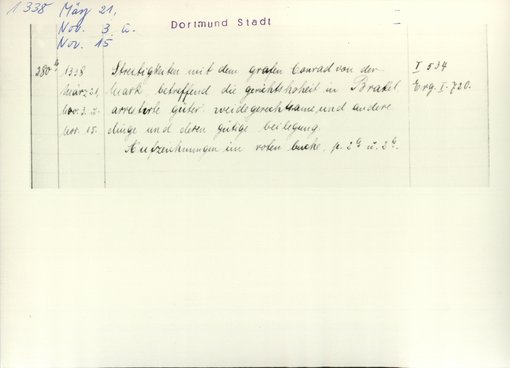 1338 März 21,
Nov. 3 u.
Nov. 15
Dortmund Stadt
280b 1338 Streitigkeiten mit dem grafen Conrad von der I 534
März 21. Mark betreffend die gerichtshoheit in Brakel Erg. I. 720.
Nov. 3. u. arrestirte güter weidegerechtsame und andere
Nov. 15. dinge und deren gütige beilegung.
Aufzeichnungen im roten buche, p. 2a u. 2b.